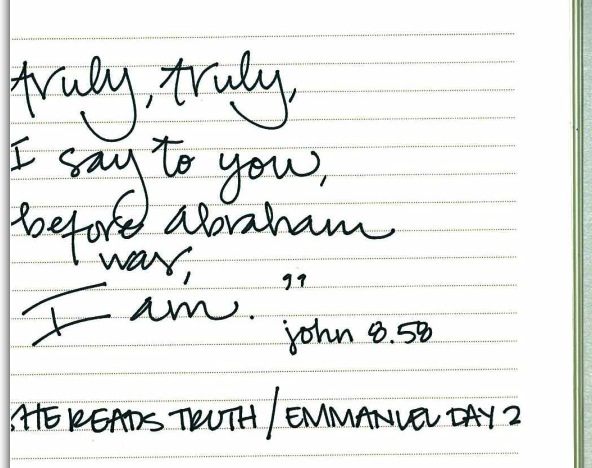 truly, truly,
I say to you,
before abraham
was,
I am."
john 8.58
SHE READS TRUTH / EMMANUEL DAY 2